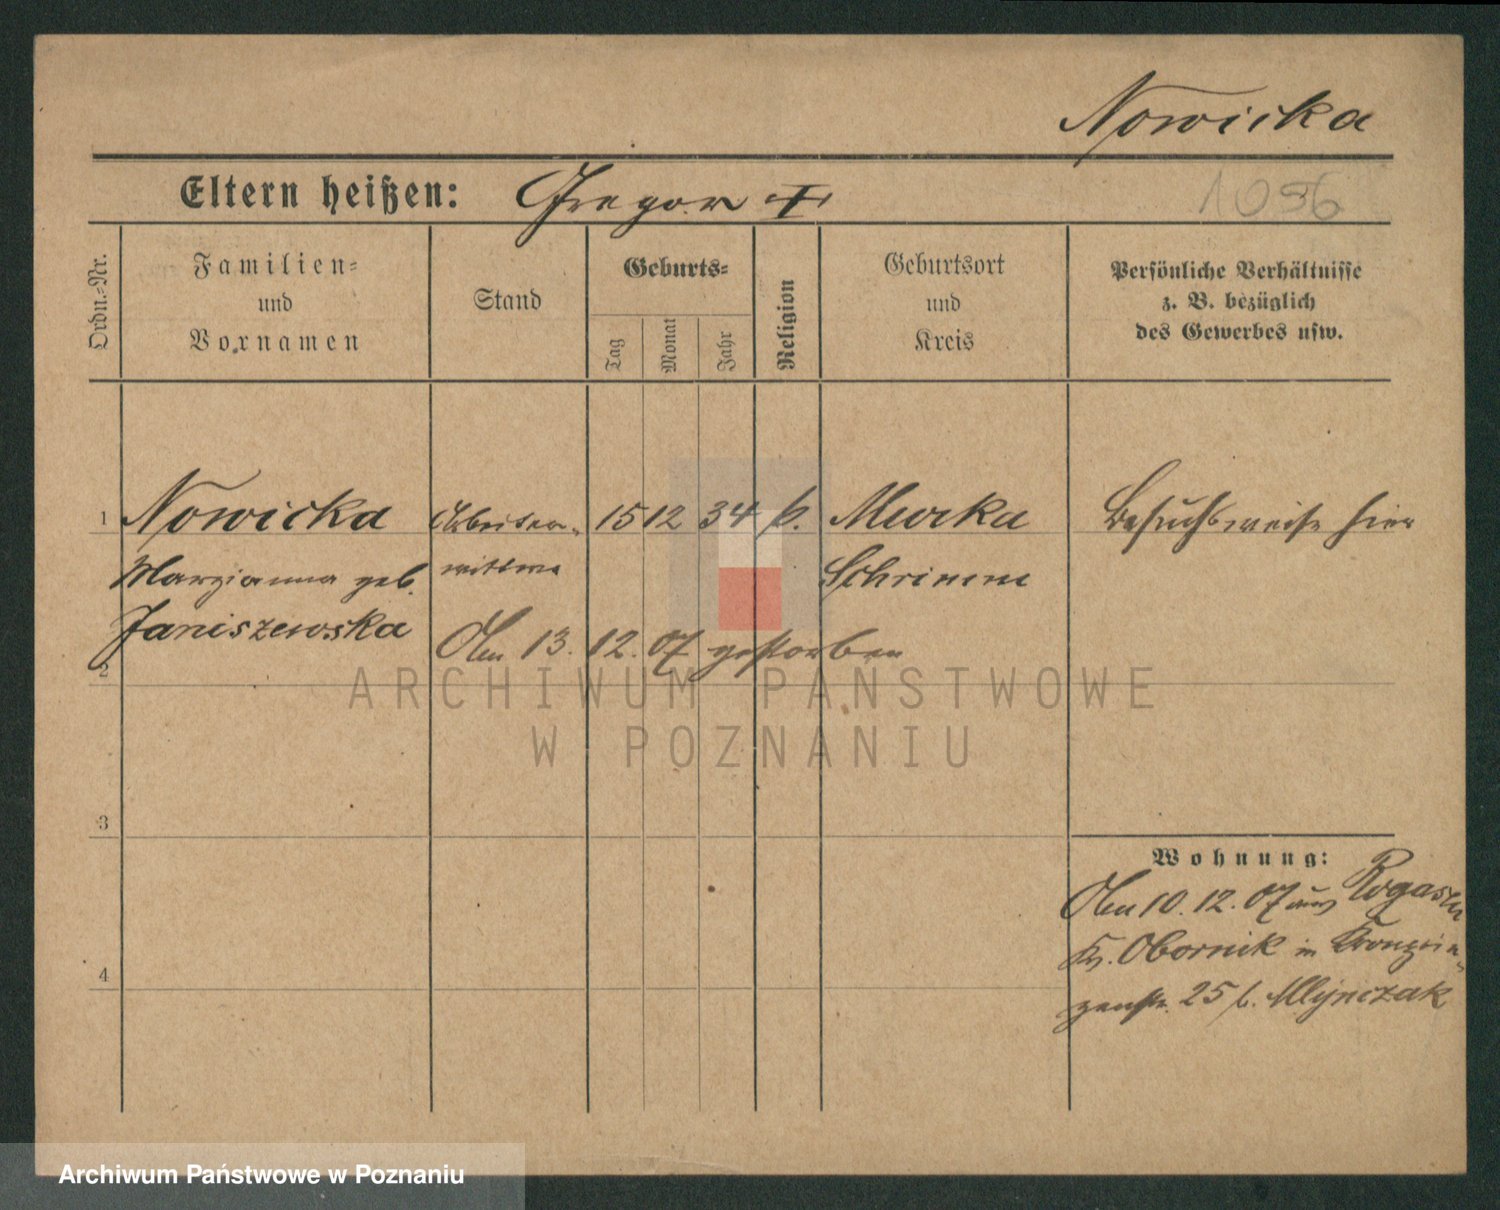 Nowicka
Eltern heißen: Gregor †
1096
Ordn.-Nr.
Familien-
und
Vornamen
Stand
Geburts-
Tag
Monat
Jahr
Religion
Geburtsort
und
Kreis
Persönliche Verhältnisse
z. B. bezüglich
des Gewerbes usw.
1 Nowicka Arbeiter- 15 12 34 k. Murka Besuchsweise hier
Marzianna geb. wittwe Schrimm
Janiszewska Am 13. 12. 07 gestorben
2
ARCHIWUM PAŃSTWOWE
W POZNANIU
3
Wohnung:
Am 10. 12. 07 aus Rogasen
Kr. Obornik in Kronprin-
zenstr. 25 b. Mlynczak
4
Archiwum Państwowe w Poznaniu